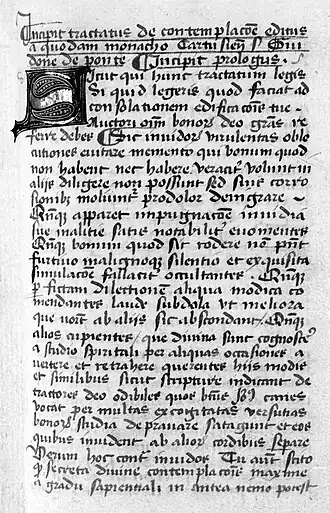 Incipit tractatus de contemplacōe editus
a quodam monacho Cartusien̄ s Gui
done de ponte Incipit prologus.
Sicut qui hunc tractatum legis
Si quid legeris quod faciat ad
consolationem edificacōnē tue
Auctori om̄ bonor deo gr̄as re
ferre debes Sic invidor virulentas oblo
cutiones evitare memento qui bonum quod
non habent nec habere veracit volunt in
alijs diligere non possunt sed suis corro
sionib
Qn̄q apparet inpugnacōnē invidia
sue malitie satis notabilit evomentes
Qn̄q bonum quod sic rodere non pn̄t
furtivo malignoq silentio et exquisita
simulacōne fallacit occultantes. Qn̄q
p fictam dilectionem aliqua modica co
mendantes laude subdola vt meliora
que norūt ab alijs sic abscondant Qn̄q
alios cupientes, que divina sunt cognoscē
a studio spiritali per aliquas occasiones a
vertere et retrahere querentes hiis modis
et similibus sicut scripture indicant de
tractores deo odibiles quos canes
vocat per multas excogitatas versutias
bonor studia depravare satagunt et eos
quibus invident ab alior cordibus separe
Verum hoc cont invidos Tu aūt scito
q secreta divine contemplacōnis maxime
a gradu sapientiali in antea nemo potest